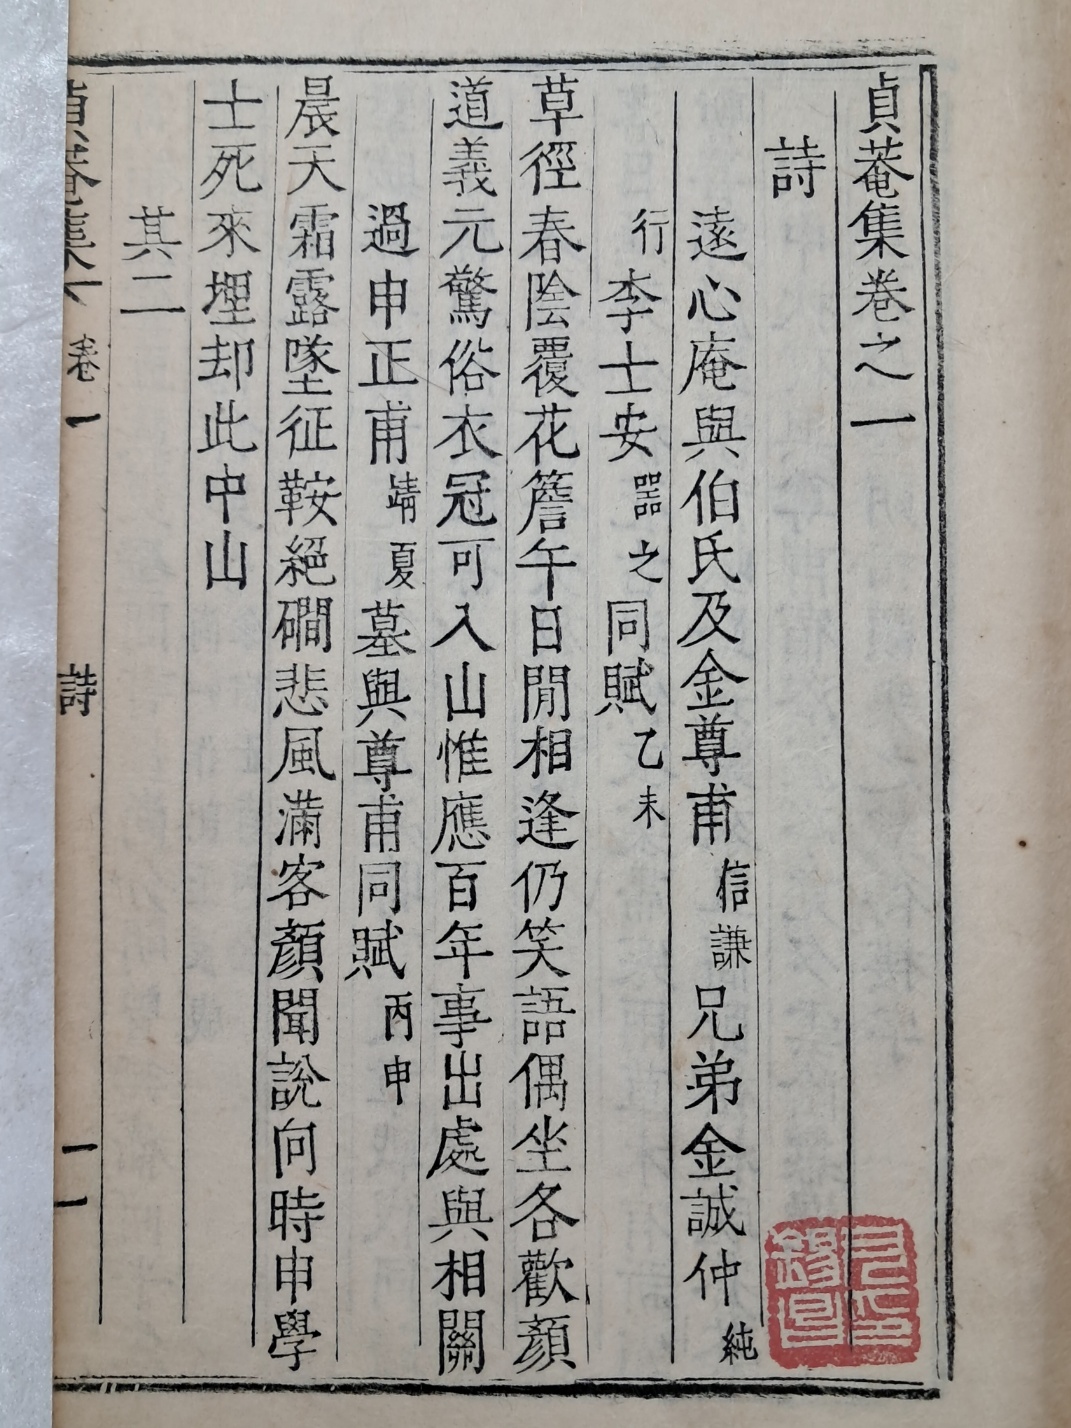 貞菴集卷之一
詩
遠心庵與伯氏及金尊甫信謙兄弟金誠仲純
行李士安器之同賦乙未
草徑春陰覆花簷午日閒相逢仍笑語偶坐各歡顏
道義元驚俗衣冠可入山惟應百年事出處與相關
過申正甫靖夏墓與尊甫同賦丙申
晨天霜露墜征鞍絕磵悲風滿客顏聞說向時申學
士死來埋却此中山
其二
貞菴集 卷一 詩 一